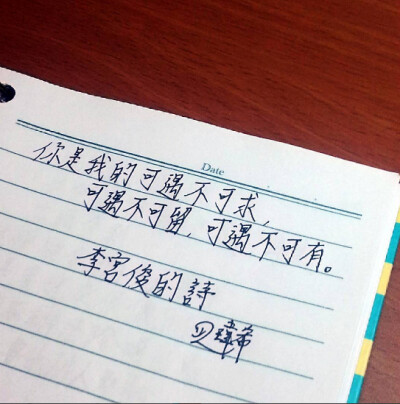 Date
你是我的可遇不可求,
可遇不可留,可遇不可有。
李宮俊的詩